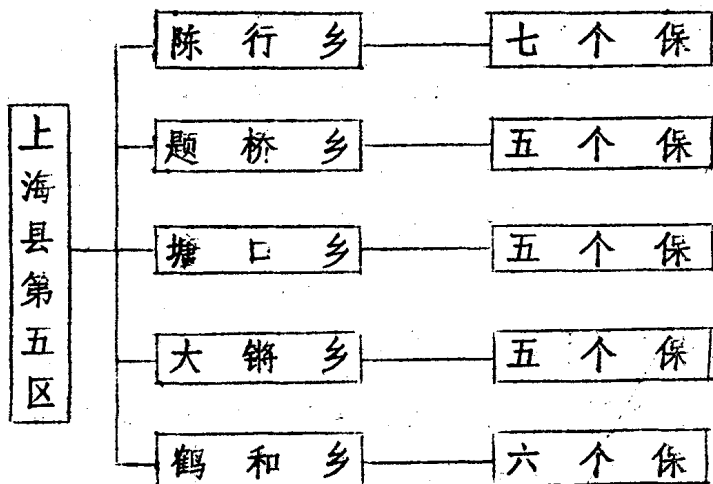 上海县第五区
陈行乡 七个保
题桥乡 五个保
塘口乡 五个保
大锵乡 五个保
鹤和乡 六个保